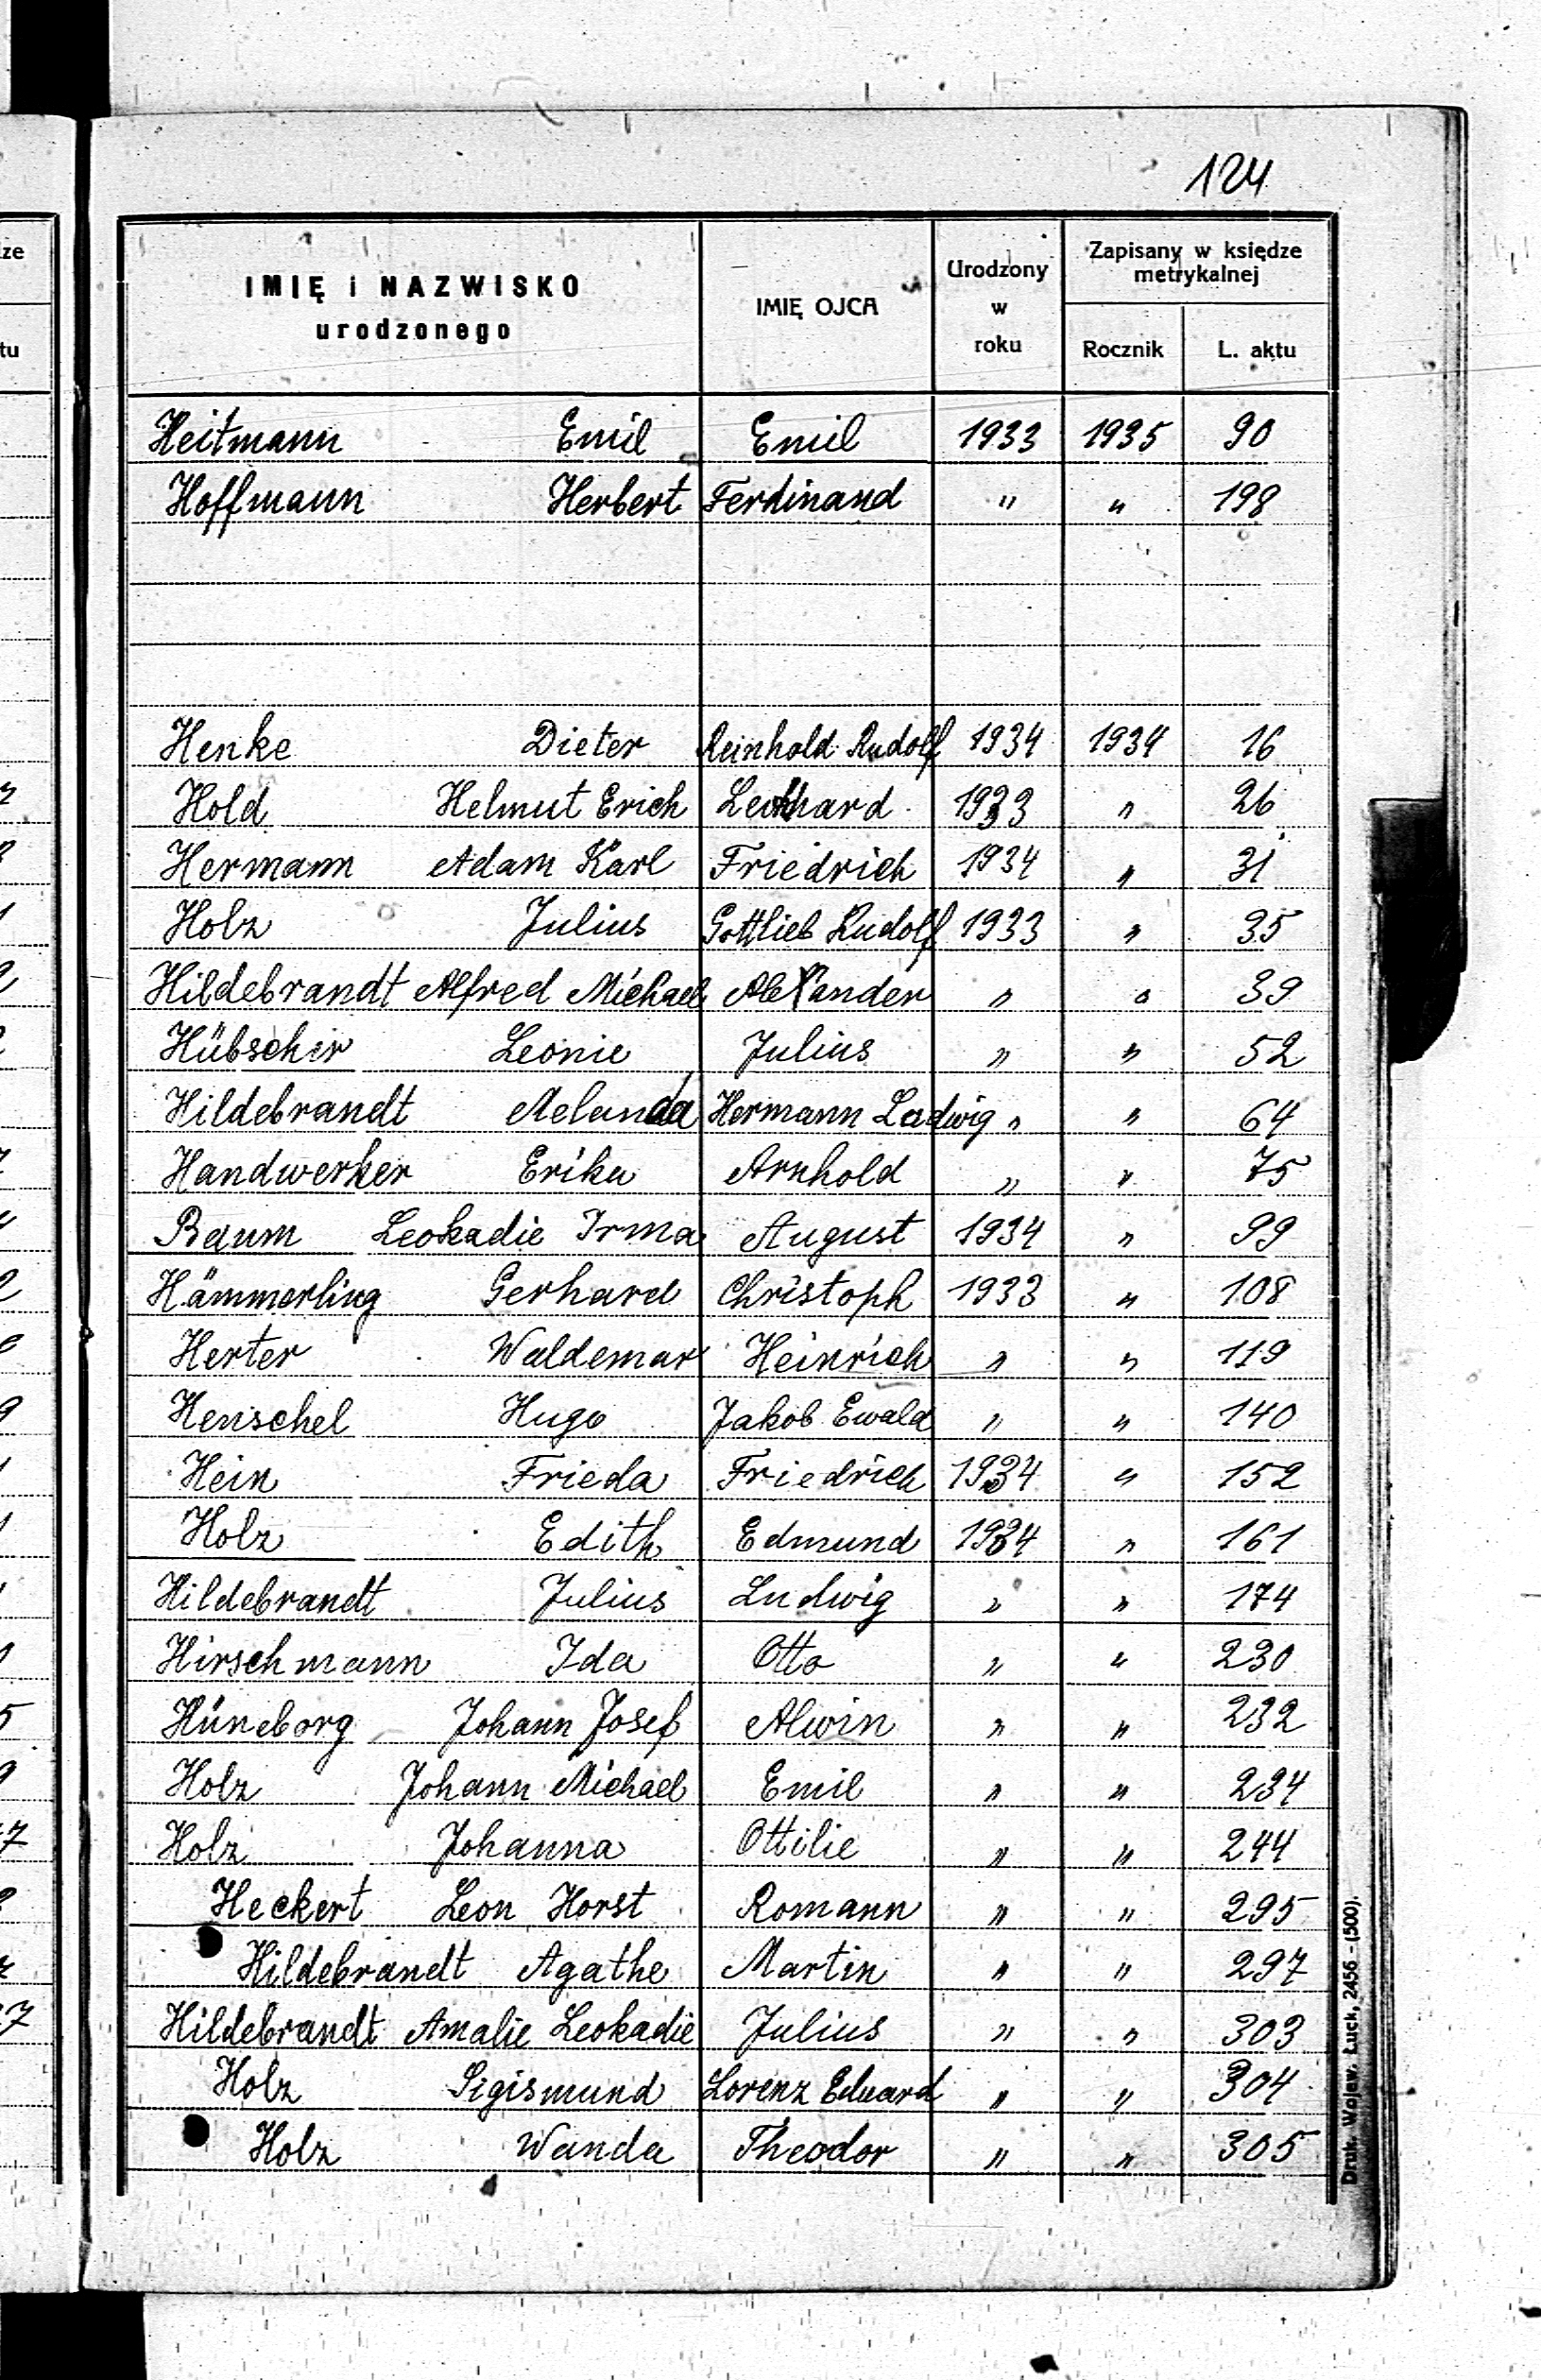 124
IMIĘ i NAZWISKO urodzonego IMIĘ OJCA Urodzony w roku Zapisany w księdze metrykalnej Rocznik L. aktu
Heitmann Emil Emil 1933 1935 90
Hoffmann Herbert Ferdinand " " 198
Henke Dieter Reinhold Rudolf 1934 1934 16
Hold Helmut Erich Leonhard 1933 " 26
Hermann Adam Karl Friedrich 1934 " 31
Holz Julius Gottlieb Rudolf 1933 " 35
Hildebrandt Alfred Michael Alexander " " 39
Hübscher Leonie Julius " " 52
Hildebrandt Melanda Hermann Ludwig " " 64
Handwerker Erika Arnhold " " 75
Baum Leokadie Irma August 1934 " 99
Hämmerling Gerhard Christoph 1933 " 108
Herter Waldemar Heinrich " " 119
Henschel Hugo Jakob Ewald " " 140
Hein Frieda Friedrich 1934 " 152
Holz Edith Edmund 1934 " 161
Hildebrandt Julius Ludwig " " 174
Hirschmann Ida Otto " " 230
Hüneborg Johann Josef Alwin " " 232
Holz Johann Michael Emil " " 234
Holz Johanna Ottilie " " 244
Heckert Leon Horst Romann " " 295
Hildebrandt Agathe Martin " " 297
Hildebrandt Amalie Leokadie Julius " " 303
Holz Sigismund Lorenz Eduard " " 304
Holz Wanda Theodor " " 305
Druk. Wojew. Łuck, 2456 – (500).